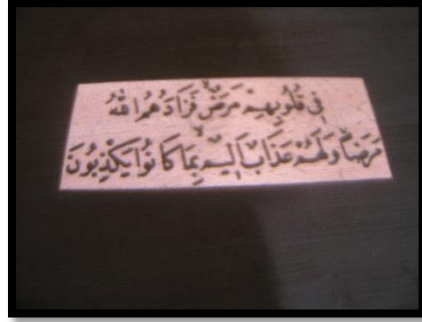 فِي قُلُوبِهِمْ مَرَضٌ فَزَادَهُمُ اللهُ
مَرَضًا وَلَهُمْ عَذَابٌ أَلِيمٌ بِمَا كَانُوا يَكْذِبُونَ